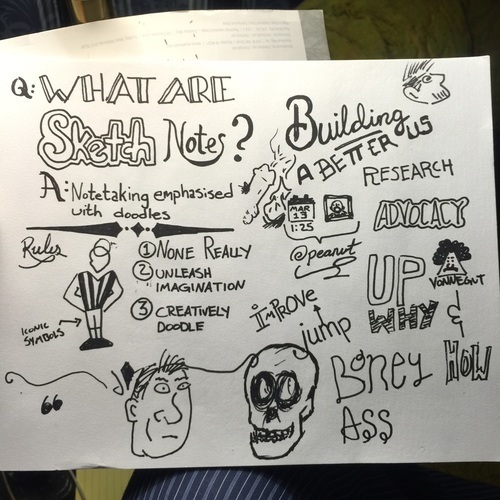 Q: WHAT ARE
Sketch Notes?
A: Notetaking emphasised
with doodles
Rules
① NONE REALLY
② UNLEASH
IMAGINATION
③ CREATIVELY
DOODLE
ICONIC
SYMBOLS
Building
A BETTER US
RESEARCH
MAR
13
1:25
@peanut
ADVOCACY
UP
VONNEGUT
WHY
&
HOW
IMPROVE
jump
Boney
ASS
“